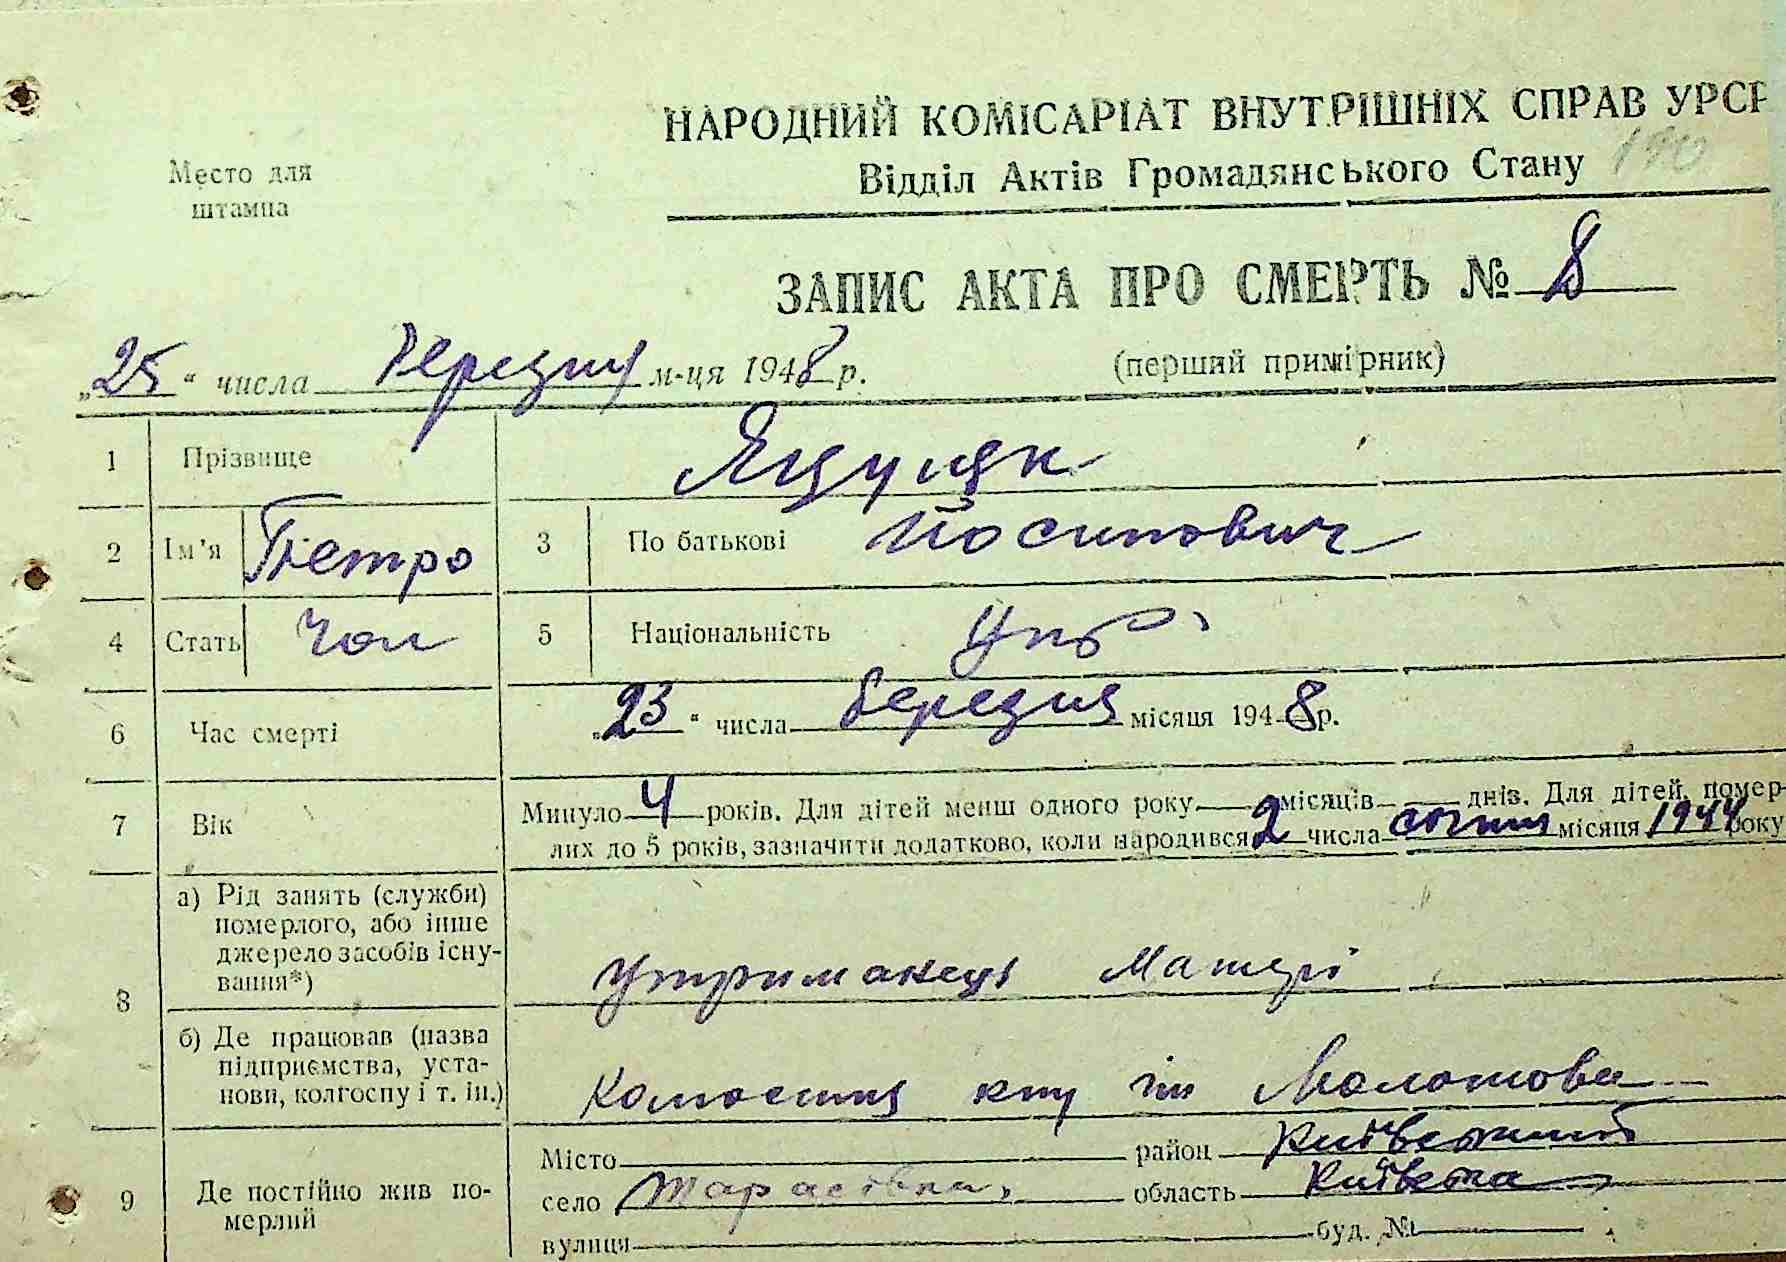 НАРОДНИЙ КОМІСАРІАТ ВНУТРІШНІХ СПРАВ УРСР
Відділ Актів Громадянського Стану 190
Место для
штампа
ЗАПИС АКТА ПРО СМЕРТЬ № 8
„25“ числа Березня м-ця 1948 р. (перший примірник)
1 Прізвище Яцуляк
2 Ім'я Петро 3 По батькові Йосипович
4 Стать Чол 5 Національність Укр.
6 Час смерті „23“ числа березня місяця 1948 р.
7 Вік Минуло 4 років. Для дітей менш одного року місяців днів. Для дітей, помер-
лих до 5 років, зазначити додатково, коли народився 2 числа січня місяця 1944 року
8 а) Рід занять (служби) померлого, або інше джерело засобів існу-вання*) Утриманець Матері
б) Де працював (назва підприємства, уста-нови, колгоспу і т. ін.) ім Молотова
9 Де постійно жив по-мерлий Місто район Київський
село Тарасівка, область Київська
вулиця буд. №